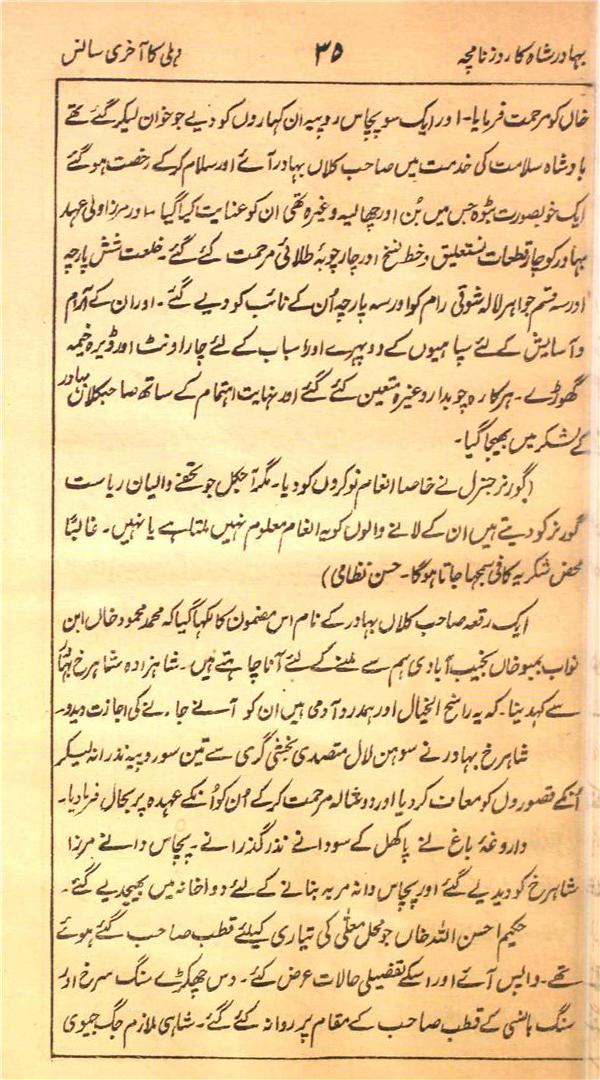 بہادر شاہ کا روزنامچہ ۳۵ دہلی کا آخری سانس
خاں کو مرحمت فرمایا۔ اور ایک سو پچاس روپیہ ان کہاروں کو دیے جو خوان لیکر گئے تھے
بادشاہ سلامت کی خدمت میں صاحب کلاں بہادر آئے اور سلام کر کے رخصت ہو گئے
ایک خوبصورت بٹوہ جس میں بُن اور چھالیہ وغیرہ تھی ان کو عنایت کیا گیا ۔ اور مرزا ولی عہد
بہادر کو چار قطعات نستعلیق و خط نسخ اور چار چوبۂ طلائی مرحمت کئے گئے۔ خلعت شش پارچہ
اور سہ قسم جواہر لالہ شوقی رام کو اور سہ پارچہ اُن کے نائب کو دیے گئے ۔ اور ان کے آرام
و آسایش کے لئے سپاہیوں کے دو پہرے اور اسباب کے لئے چار اونٹ اور ڈیرہ خیمہ
گھوڑے ۔ ہرکارہ چوبدار وغیرہ متعین کئے گئے اور نہایت اہتمام کے ساتھ صاحب کلاں بہادر
کے لشکر میں بھیجا گیا۔
(گورنر جنرل نے خاصا انعام نوکروں کو دیا۔ مگر آجکل جو تحفے والیان ریاست
گورنر کو دیتے ہیں ان کے لانے والوں کو یہ انعام معلوم نہیں ملتا ہے یا نہیں۔ غالباً
محض شکریہ کافی سمجھا جاتا ہوگا۔ حسن نظامی)
ایک رقعہ صاحب کلاں بہادر کے نام اس مضمون کا لکھا گیا کہ محمد محمود خاں ابن
نواب بمبو خاں نجیب آبادی ہم سے ملنے کے لئے آنا چاہتے ہیں۔ شاہزادہ شاہرخ بہادر
سے کہدینا۔ کہ یہ راسخ الخیال اور ہمدرد آدمی ہیں ان کو آنے جانے کی اجازت دیدو۔
شاہرخ بہادر نے سوہن لال متصدی بخشی گری سے تین سو روپیہ نذرانہ لیکر
اُنکے قصوروں کو معاف کر دیا اور دوشالہ مرحمت کر کے اُن کو اُنکے عہدہ پر بحال فرمادیا۔
داروغۂ باغ نے پاکھل کے سو دانے نذر گذرانے ۔ پچاس دانے مرزا
شاہرخ کو دیدیے گئے اور پچاس دانہ مربہ بنانے کے لئے دواخانہ میں بھیجدیے گئے۔
حکیم احسن اللہ خاں جو محل معلّٰی کی تیاری کیلئے قطب صاحب گئے ہوئے
تھے۔ واپس آئے اور اسکے تفصیلی حالات عرض کئے۔ دس چھکڑے سنگ سرخ اور
سنگ بانسی کے قطب صاحب کے مقام پر روانہ کئے گئے۔ شاہی ملازم جگ جیوی